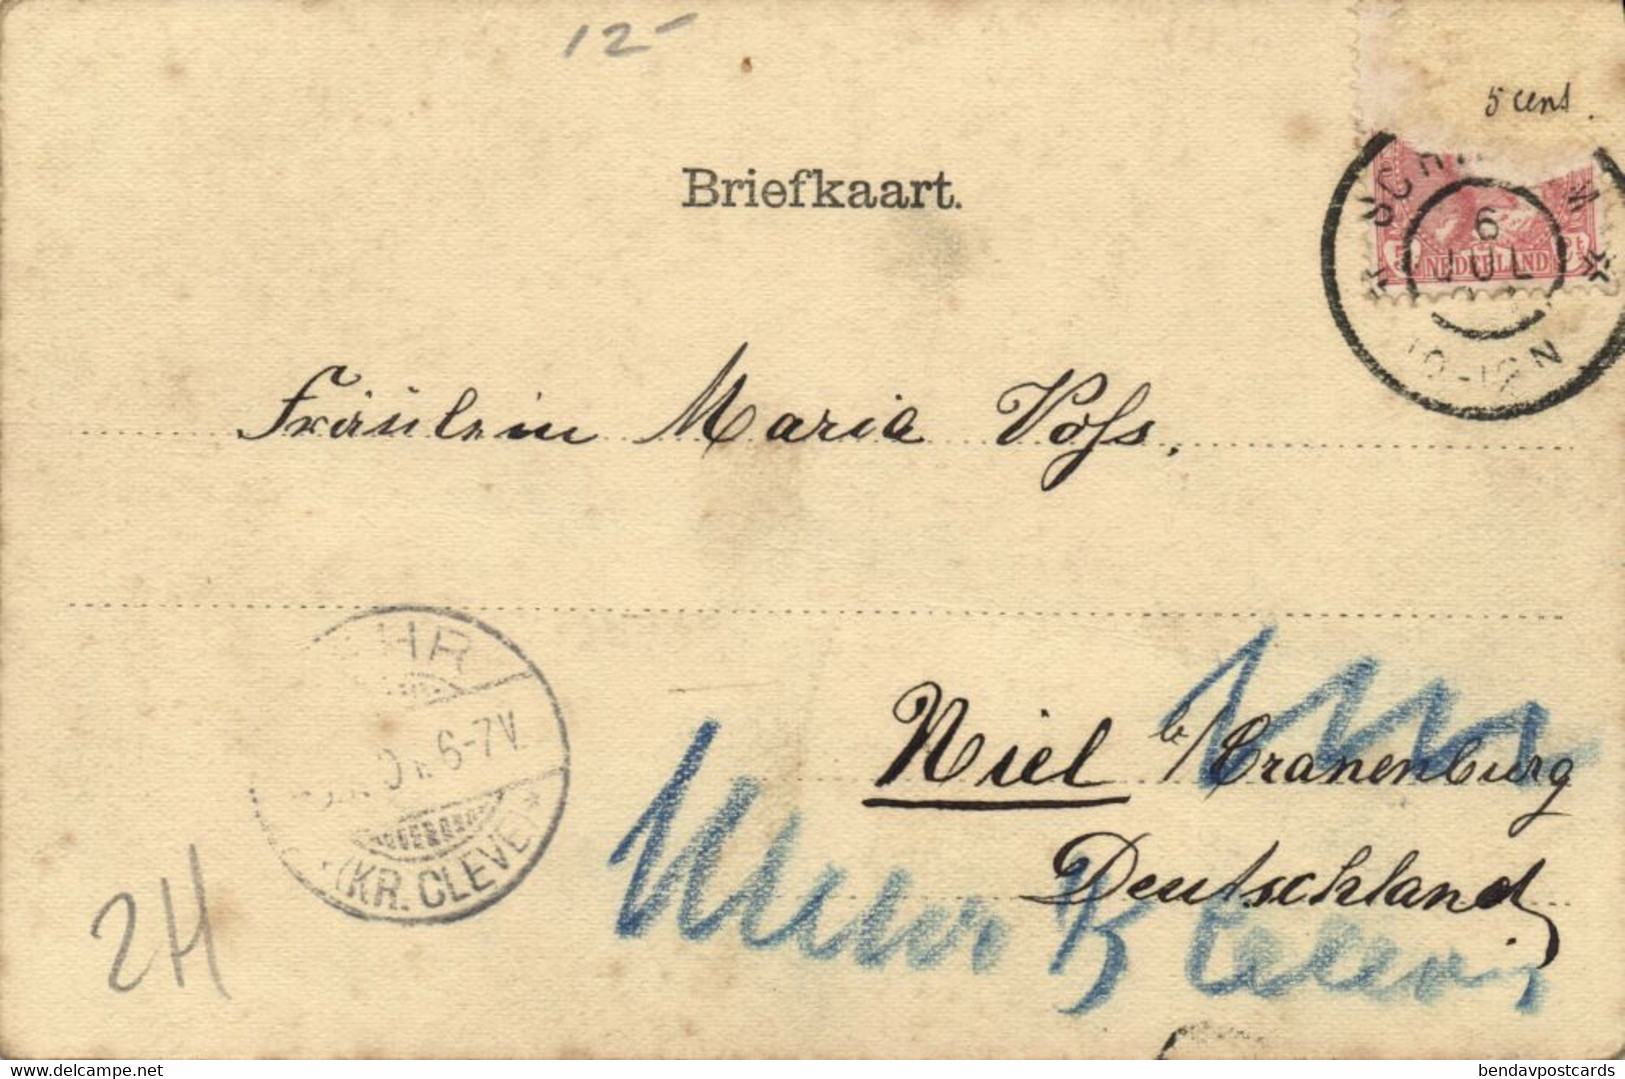 12-
5 cent.
Briefkaart.
6
JUL
5
NEDERLAND
10-12N
Fräulein Maria Voss,
HR
6-7V.
(KR. CLEVE)
Niel b/Cranenburg
Deutschland
2H
delcampe.net
bendavpostcards